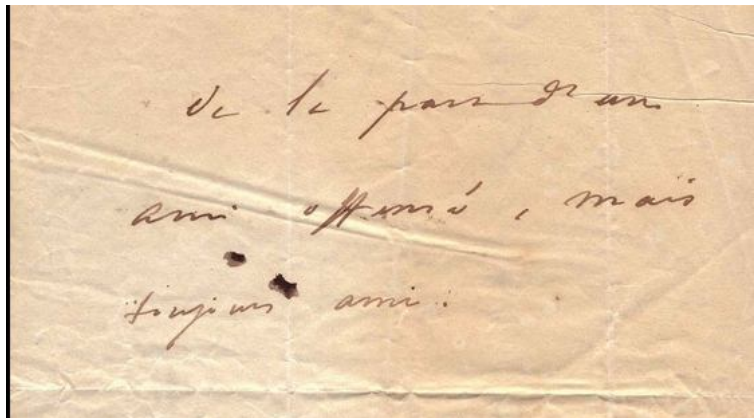 de la part d'un
ami offensé, mais
toujours ami.